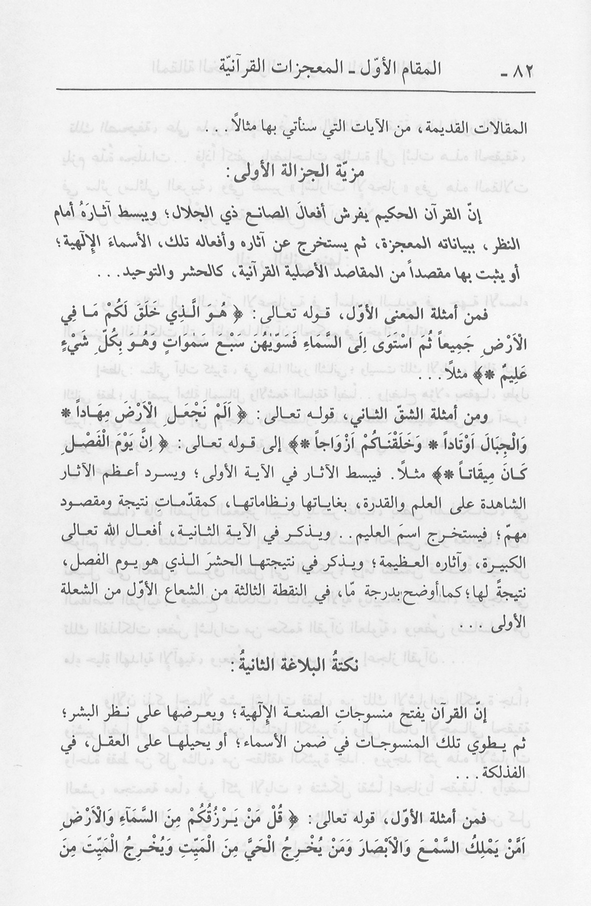 ٨٢ - المقام الأوّل - المعجزات القرآنيّة
المقالات القديمة، من الآيات التي سنأتي بها مثالاً...
مزيّة الجزالة الأولى:
إنّ القرآن الحكيم يفرش أفعالَ الصانع ذي الجلال؛ ويبسط آثارَهُ أمام
النظر، ببياناته المعجزة، ثم يستخرج عن آثاره وأفعاله تلك، الأسماءَ الإلٰهية؛
أو يثبت بها مقصداً من المقاصد الأصلية القرآنية، كالحشر والتوحيد...
فمن أمثلة المعنى الأوّل، قوله تعالى: ﴿ هُوَ الَّذي خَلَقَ لَكُمْ مَا فِي
الْاَرْضِ جَمِيعاً ثُمَّ اسْتَوَى اِلَى السَّمَاءِ فَسَوّٰيهُنَّ سَبْعَ سَمٰوَاتٍ وَهُوَ بِكُلِّ شَيْءٍ
عَلِيمٌ *﴾ مثلاً...
ومن أمثلة الشقّ الثاني، قوله تعالى: ﴿ اَلَمْ نَجْعَلِ الْاَرْضَ مِهَاداً *
وَالْجِبَالَ اَوْتَاداً * وَخَلَقْنَاكُمْ اَزْوَاجاً *﴾ إلى قوله تعالى: ﴿ اِنَّ يَوْمَ الْفَصْلِ
كَانَ مِيقَاتاً *﴾ مثلاً. فيبسط الآثار في الآية الأولى؛ ويسرد أعظم الآثار
الشاهدة على العلم والقدرة، بغاياتها ونظاماتها، كمقدّماتِ نتيجة ومقصود
مهمّ؛ فيستخرج اسمَ العليم.. ويذكر في الآية الثانية، أفعال الله تعالى
الكبيرة، وآثاره العظيمة؛ ويذكر في نتيجتها الحشرَ الذي هو يوم الفصل،
نتيجةً لها؛ كما أوضح بدرجة مّا، في النقطة الثالثة من الشعاع الأوّل من الشعلة
الأولى...
نكتةُ البلاغة الثانيةُ:
إنّ القرآن يفتح منسوجاتِ الصنعة الإلٰهية؛ ويعرضها على نظر البشر؛
ثم يطوي تلك المنسوجات في ضمن الأسماء؛ أو يحيلها على العقل، في
الفذلكة...
فمن أمثلة الأوّل، قوله تعالى: ﴿ قُلْ مَنْ يَرْزُقُكُمْ مِنَ السَّمَآءِ وَالْاَرْضِ
اَمَّنْ يَمْلِكُ السَّمْعَ وَالْاَبْصَارَ وَمَنْ يُخْرِجُ الْحَيَّ مِنَ الْمَيِّتِ وَيُخْرِجُ الْمَيِّتَ مِنَ